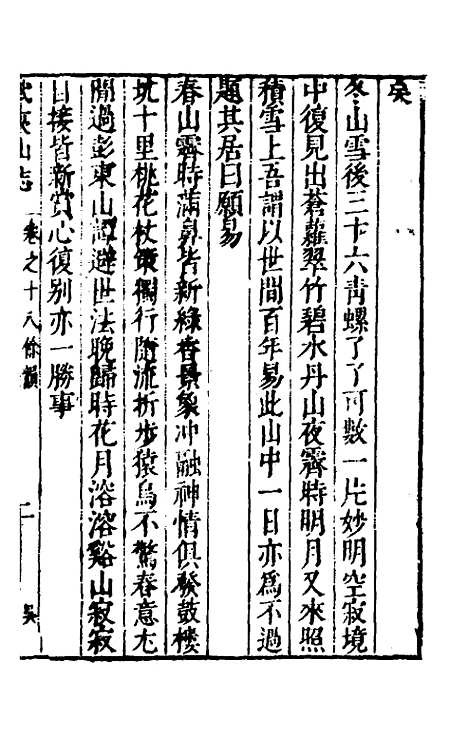 矣
冬山雪後三十六青螺了了可數一片妙明空寂境
中復見出蒼蘿翠竹碧水丹山夜霽時明月又來照
積雪上吾謂以世間百年易此山中一日亦爲不過
題其居曰願易
春山霽時滿鼻皆新綠香景象沖融神情俱發鼓樓
坑十里桃花杖策獨行隨流折步猿鳥不驚春意尤
閒過彭東山譚避世法晩歸時花月溶溶谿山寂寂
目接皆新賞心復別亦一勝事
武夷山志 卷之十八 餘韻 二 矣